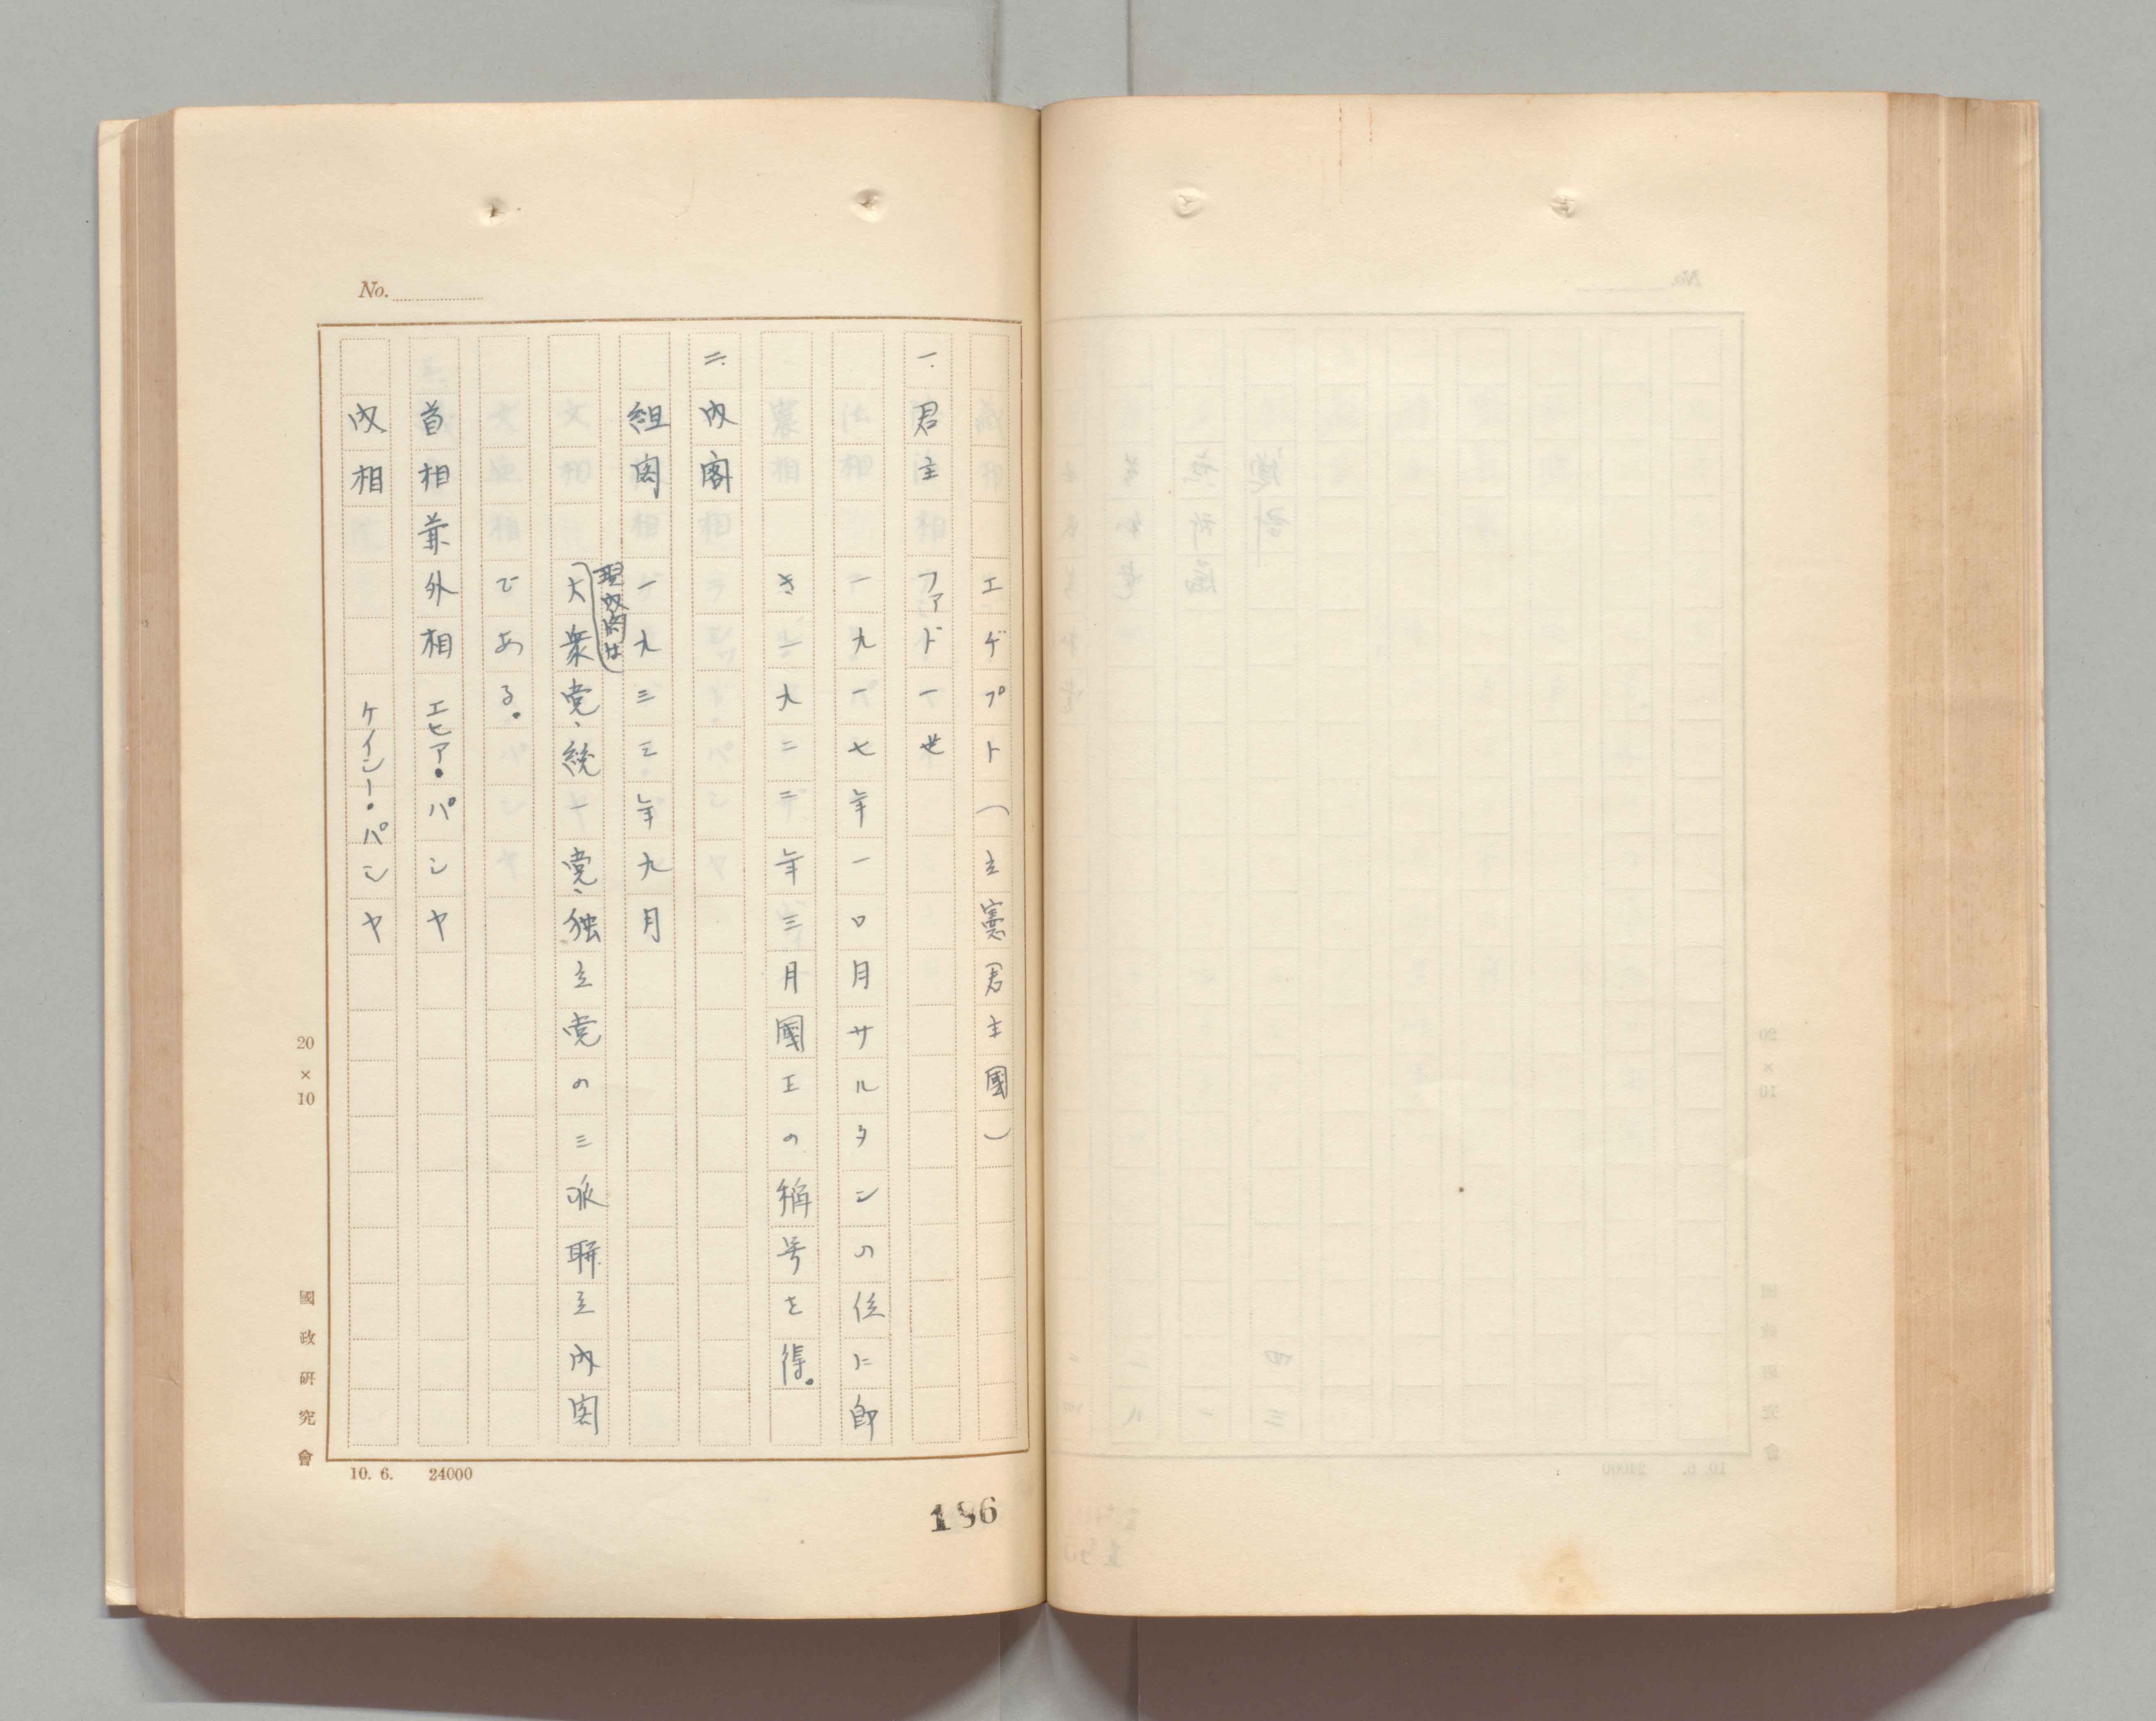 No.
エヂプト(立憲君主國)
一.君主 ファド一世
一九一七年一〇月サルタンの位に即
き一九二二年三月國王の称号を得。
二.内閣
組閣 一九三三年九月
現内閣は
大衆党、統一党、独立党の三派聯立内閣
である。
首相兼外相 エヒア・パシヤ
内相 ケイシー・パシヤ
20×10
國政研究會
10. 6. 24000
186